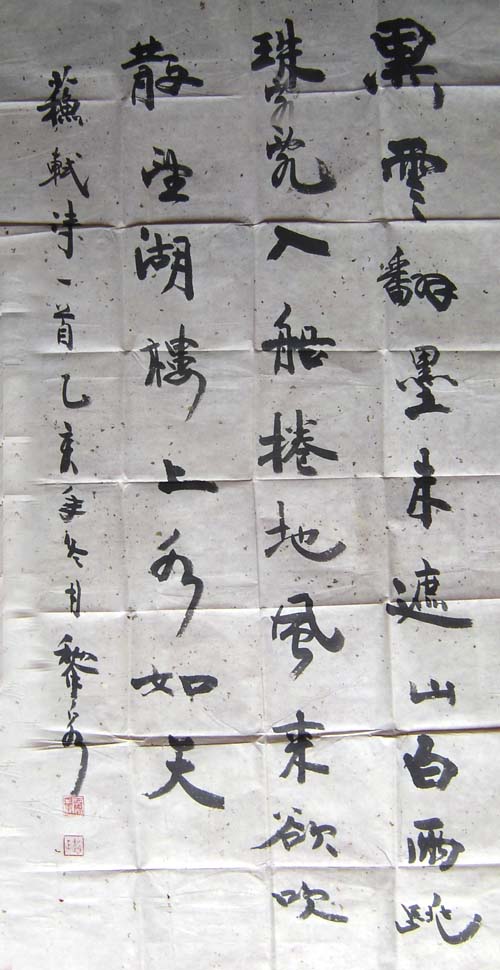 黑雲翻墨未遮山白雨跳
珠亂入船捲地風來欲吹
散望湖樓上水如天
蘇軾诗一首乙亥年冬月黎泉